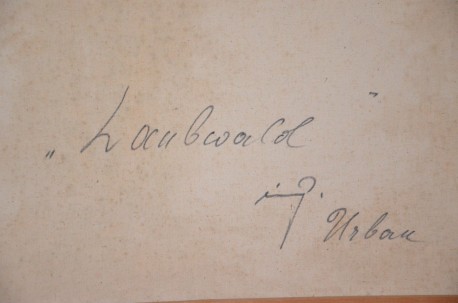 „Laubwald"
Urban